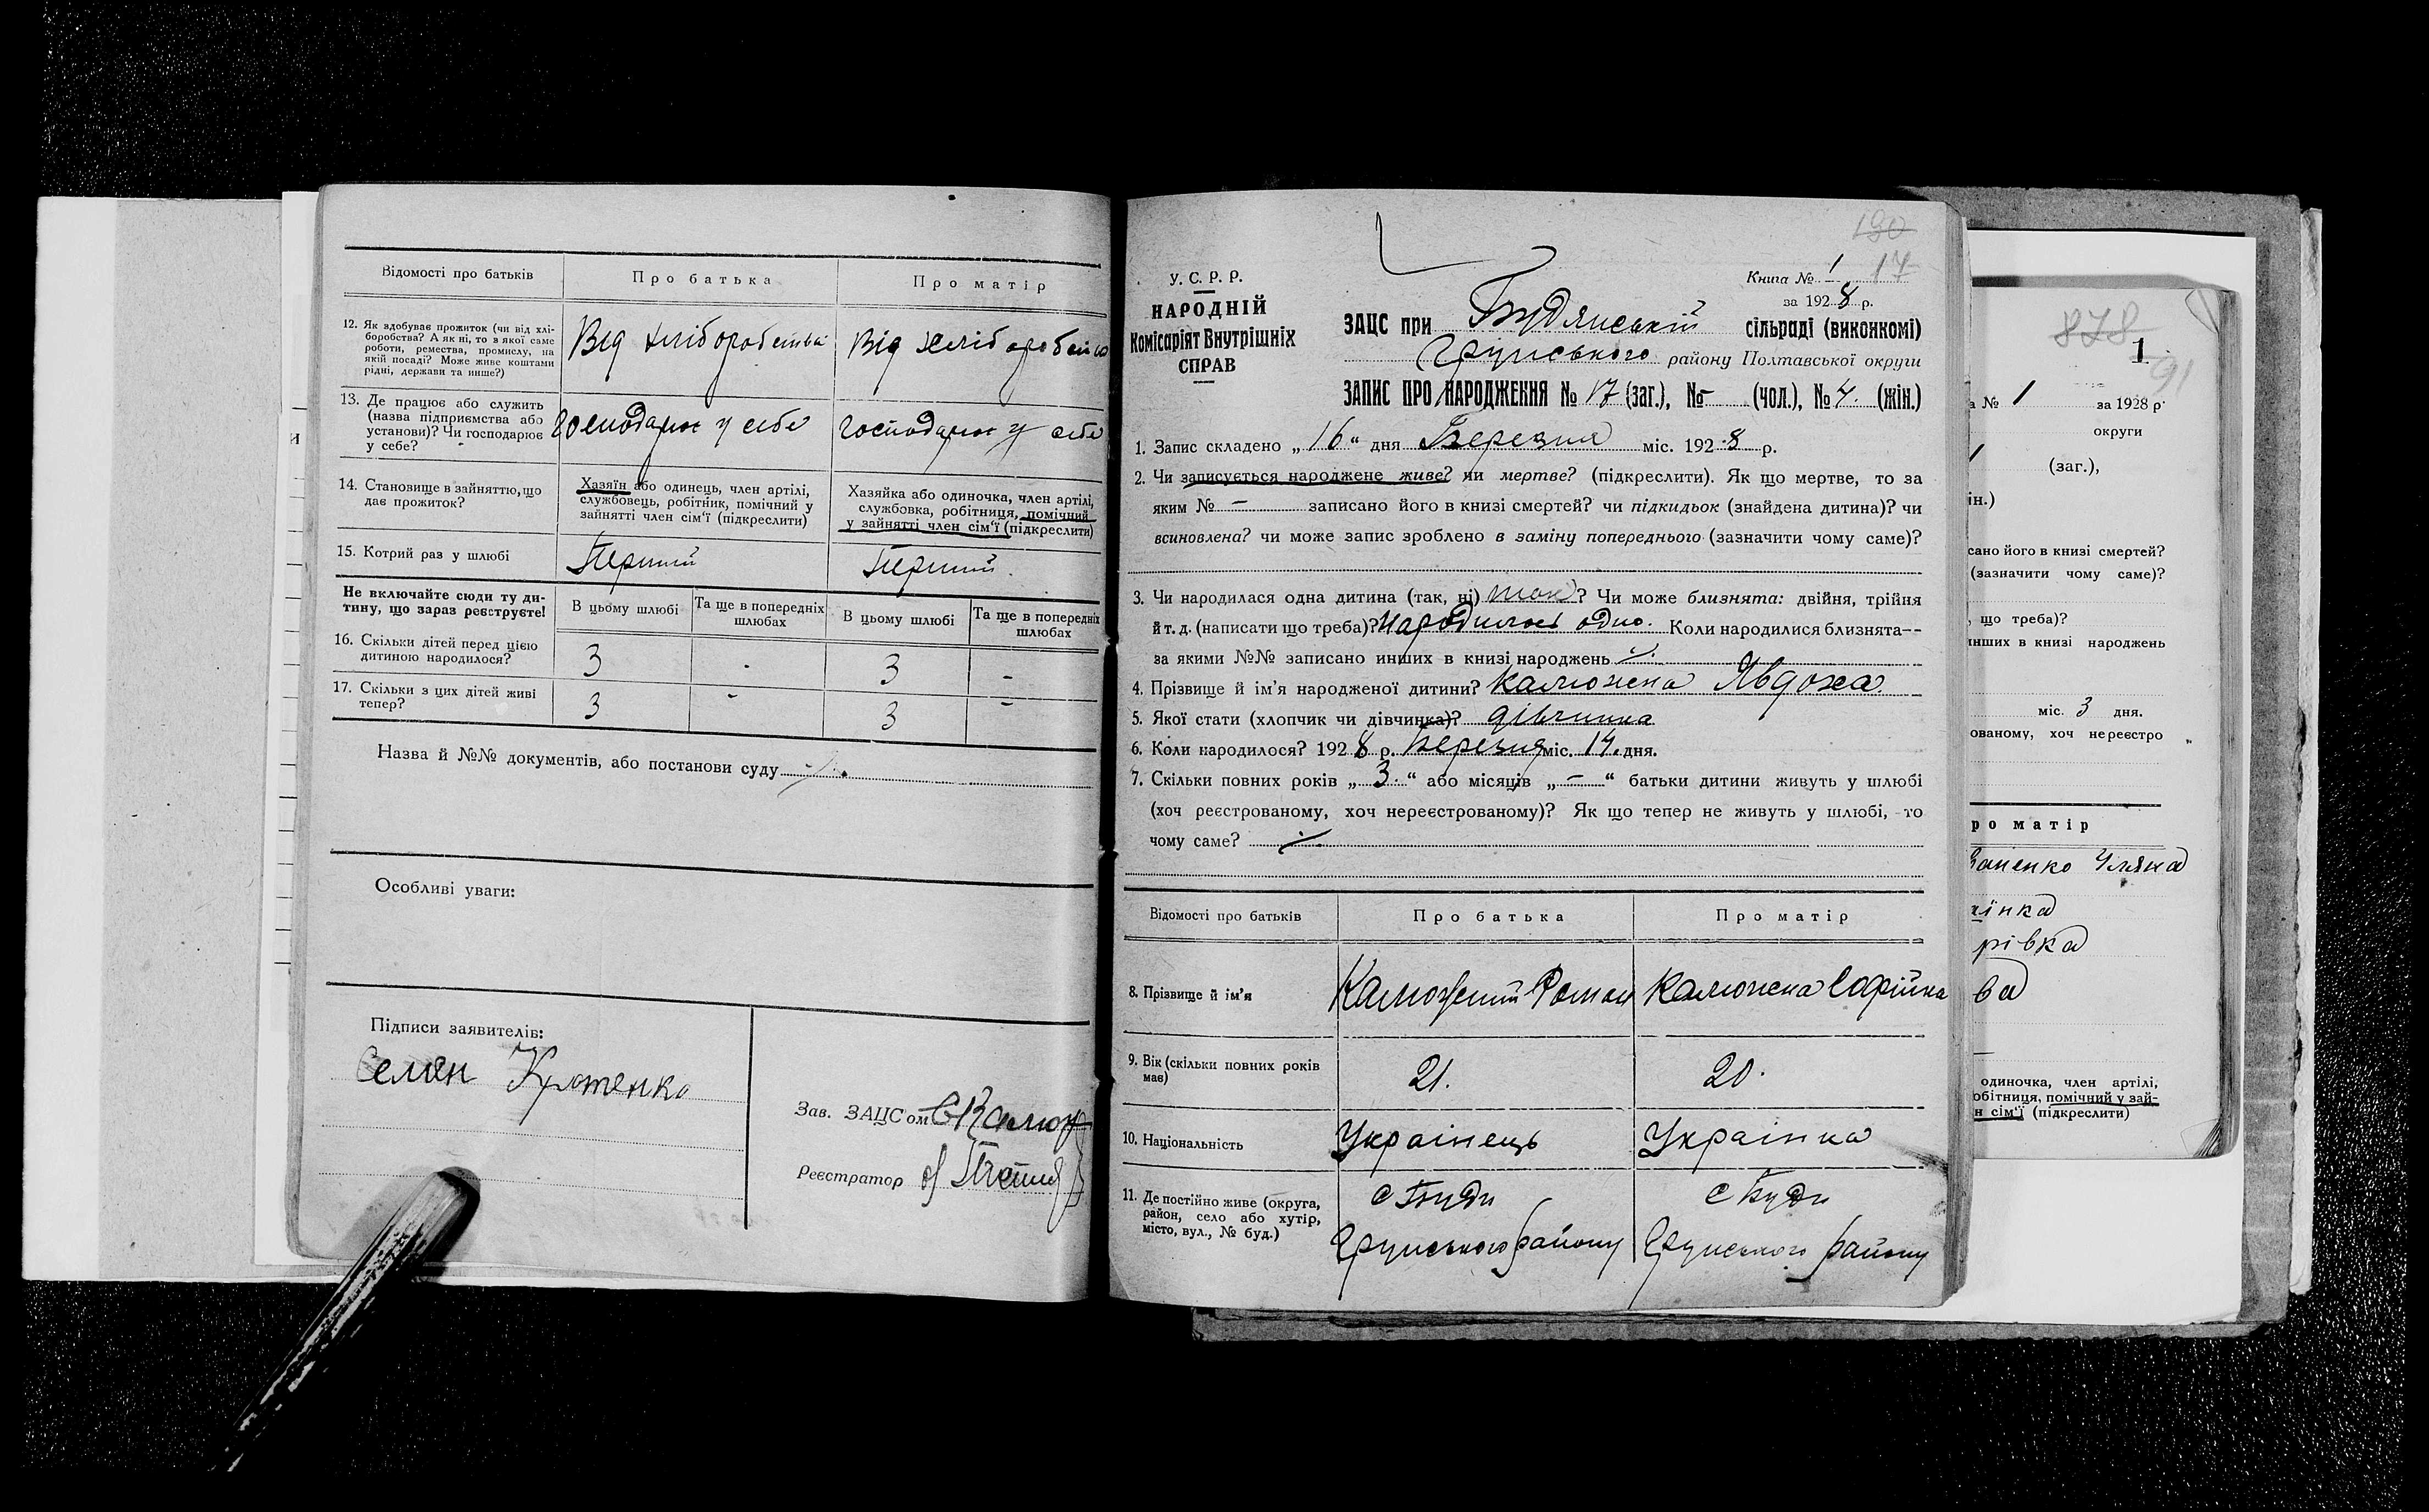 Відомості про батьків Про батька Про матір
12. Як здобуває прожиток (чи від хлі-
боробства? А як ні, то в якої саме
роботи, ремества, промислу, на
якій посаді? Може живе коштами
рідні, держави та инше?)
Від хліборобства Від хліборобства
13. Де працює або служить
(назва підприємства або
установи)? Чи господарює
у себе?
господарює у себе господарює у себе
14. Становище в зайняттю, що
дає прожиток?
Хазяїн або одинець, член артілі,
службовець, робітник, помічний у
зайнятті член сім'ї (підкреслити)
Хазяйка або одиночка, член артілі,
службовка, робітниця, помічний
у зайнятті член сім'ї (підкреслити)
15. Котрий раз у шлюбі Перший Перший.
Не включайте сюди ту ди-
тину, що зараз реєструєте!
В цьому шлюбі Та ще в попередніх шлюбах В цьому шлюбі Та ще в попередніх шлюбах
16. Скільки дітей перед цією
дитиною народилося?
3 - 3 -
17. Скільки з цих дітей живі
тепер?
3 - 3 -
Назва й №№ документів, або постанови суду
Особливі уваги:
Підписи заявителів:
Семен
Зав. ЗАЦСом
Реєстратор
190
17
У. С. Р. Р.
НАРОДНІЙ
Комісаріят Внутрішніх
СПРАВ
Книга № 1
за 1928 р.
ЗАЦС при Будянській сільраді (виконкомі)
Грунського району Полтавської округи
ЗАПИС ПРО НАРОДЖЕННЯ № 17 (заг.), № - (чол.), № 4. (жін.)
1. Запис складено „16“ дня Березня міс. 1928 р.
2. Чи записується народжене живе? чи мертве? (підкреслити). Як що мертве, то за
яким № - записано його в книзі смертей? чи підкидьок (знайдена дитина)? чи
всиновлена? чи може запис зроблено в заміну попереднього (зазначити чому саме)?
3. Чи народилася одна дитина (так, ні) так? Чи може близнята: двійня, трійня
й т. д. (написати що треба)? народилось одно. Коли народилися близнята—
за якими №№ записано инших в книзі народжень
4. Прізвище й ім'я народженої дитини? Калюжна Явдоха.
5. Якої стати (хлопчик чи дівчинка)? дівчинка
6. Коли народилося? 1928 р. Березня міс. 14. дня.
7. Скільки повних років „3.“ або місяців „-“ батьки дитини живуть у шлюбі
(хоч реєстрованому, хоч нереєстрованому)? Як що тепер не живуть у шлюбі, то
чому саме?
Відомості про батьків Про батька Про матір
8. Прізвище й ім'я Калюжний Роман Калюжна Софійка
9. Вік (скільки повних років
має)
21. 20.
10. Національність Українець Українка
11. Де постійно живе (округа,
район, село або хутір,
місто, вул., № буд.)
с Буди с Буди
Грунського району Грунського району
878
1.
91
а № 1 за 1928 р.
округи
(заг.),
ін.)
сано його в книзі смертей?
(зазначити чому саме)?
, що треба)?
инших в книзі народжень
міс. 3 дня.
ованому, хоч нереєстро
ро матір
Уляна
їнка
рівка
ва
одиночка, член артілі,
обітниця, помічний у зай-
н сім'ї (підкреслити)